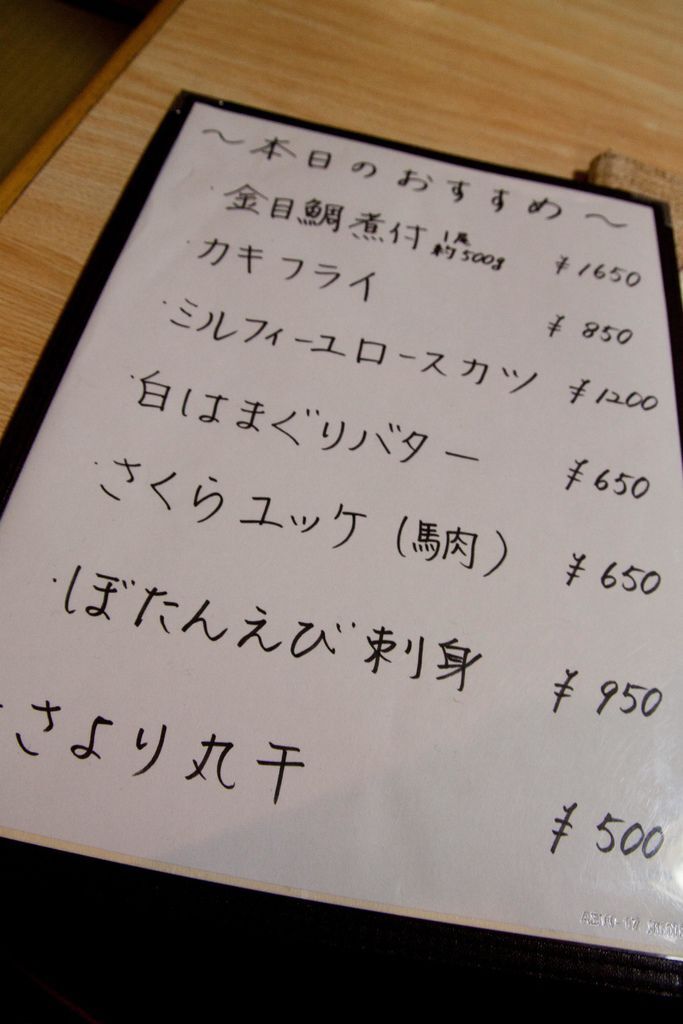 ～本日のおすすめ～
・金目鯛煮付 1尾 約500g ¥1650
・カキフライ ¥850
・ミルフィーユロースカツ ¥1200
・白はまぐりバター ¥650
・さくらユッケ(馬肉) ¥650
・ぼたんえび刺身 ¥950
・さより丸干 ¥500